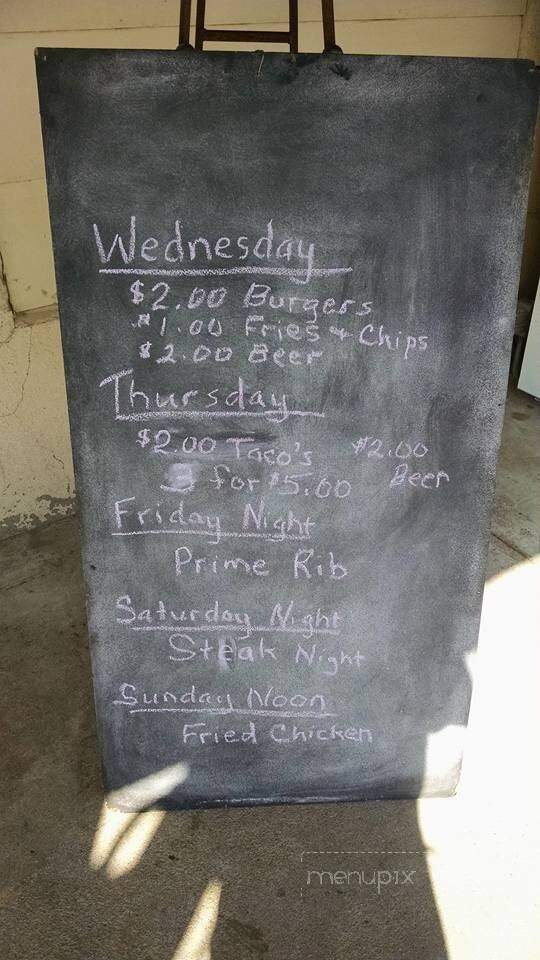 Wednesday
$2.00 Burgers
$1.00 Fries & Chips
$2.00 Beer
Thursday
$2.00 Taco's $2.00
for $5.00 Beer
Friday Night
Prime Rib
Saturday Night
Steak Night
Sunday Noon
Fried Chicken
menupix